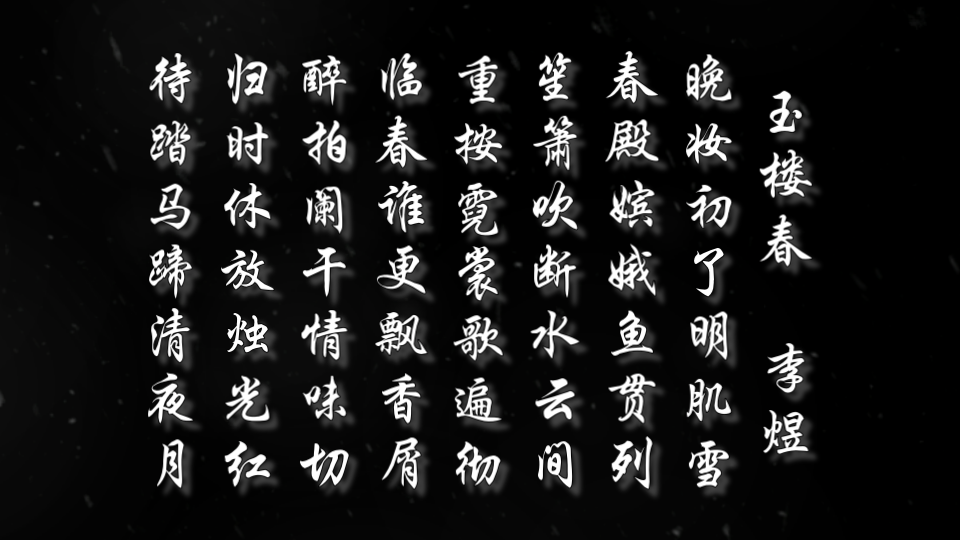 玉楼春 李煜
晚妆初了明肌雪
春殿嫔娥鱼贯列
笙箫吹断水云间
重按霓裳歌遍彻
临春谁更飘香屑
醉拍阑干情味切
归时休放烛光红
待踏马蹄清夜月